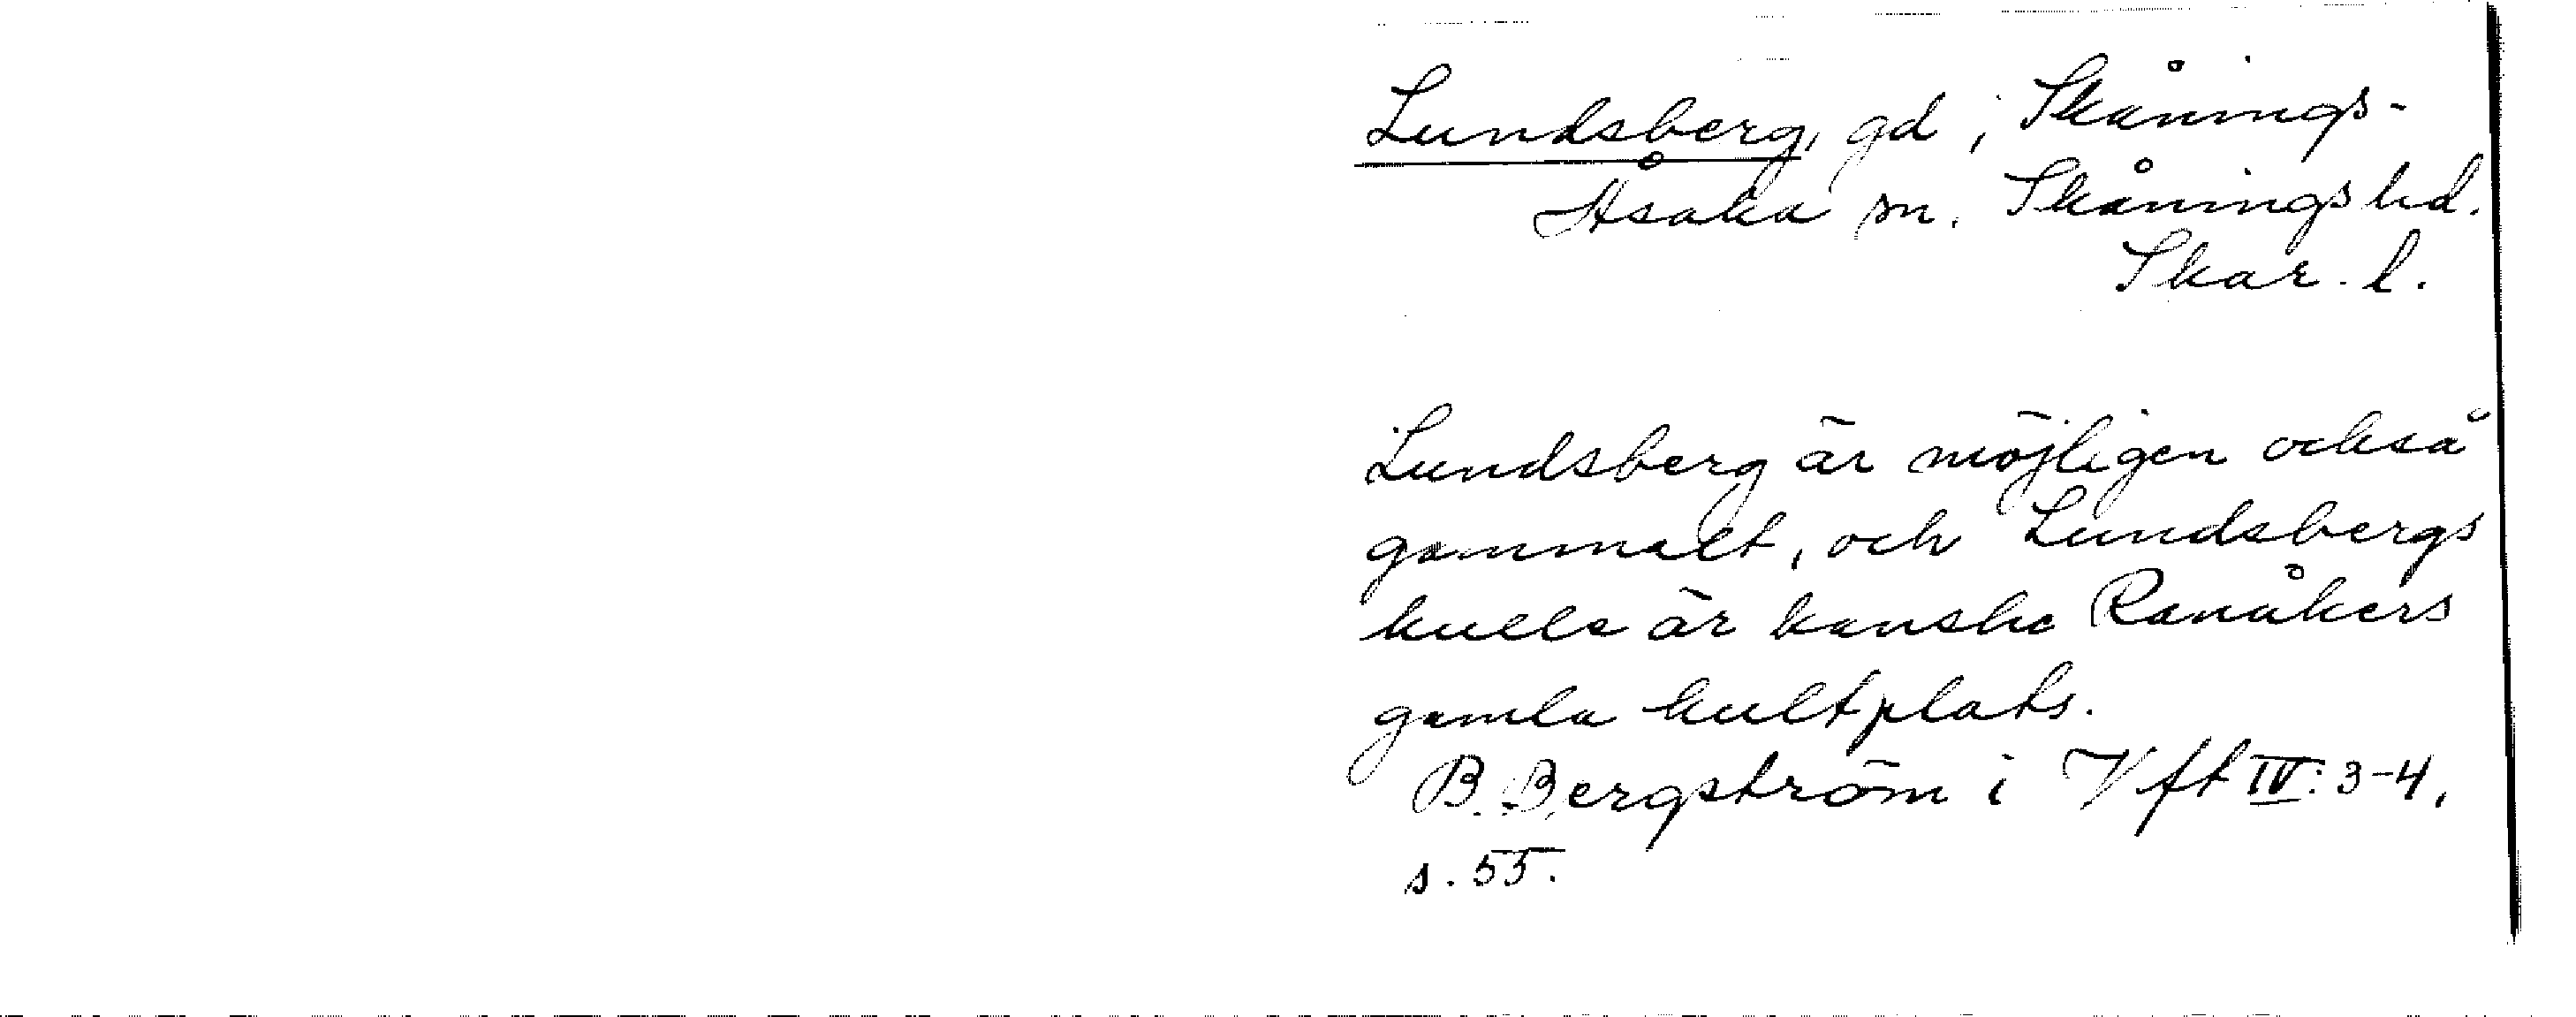 Lundsberg, gd, Skånings-
Åsaka sn. Skånings hd.
Skar. l.
Lundsberg är möjligen också
gammalt, och Lundsbergs
kulle är kanske Ranåkers
gamla kultplats.
B. Bergström i Vft IV: 3-4,
s. 55.